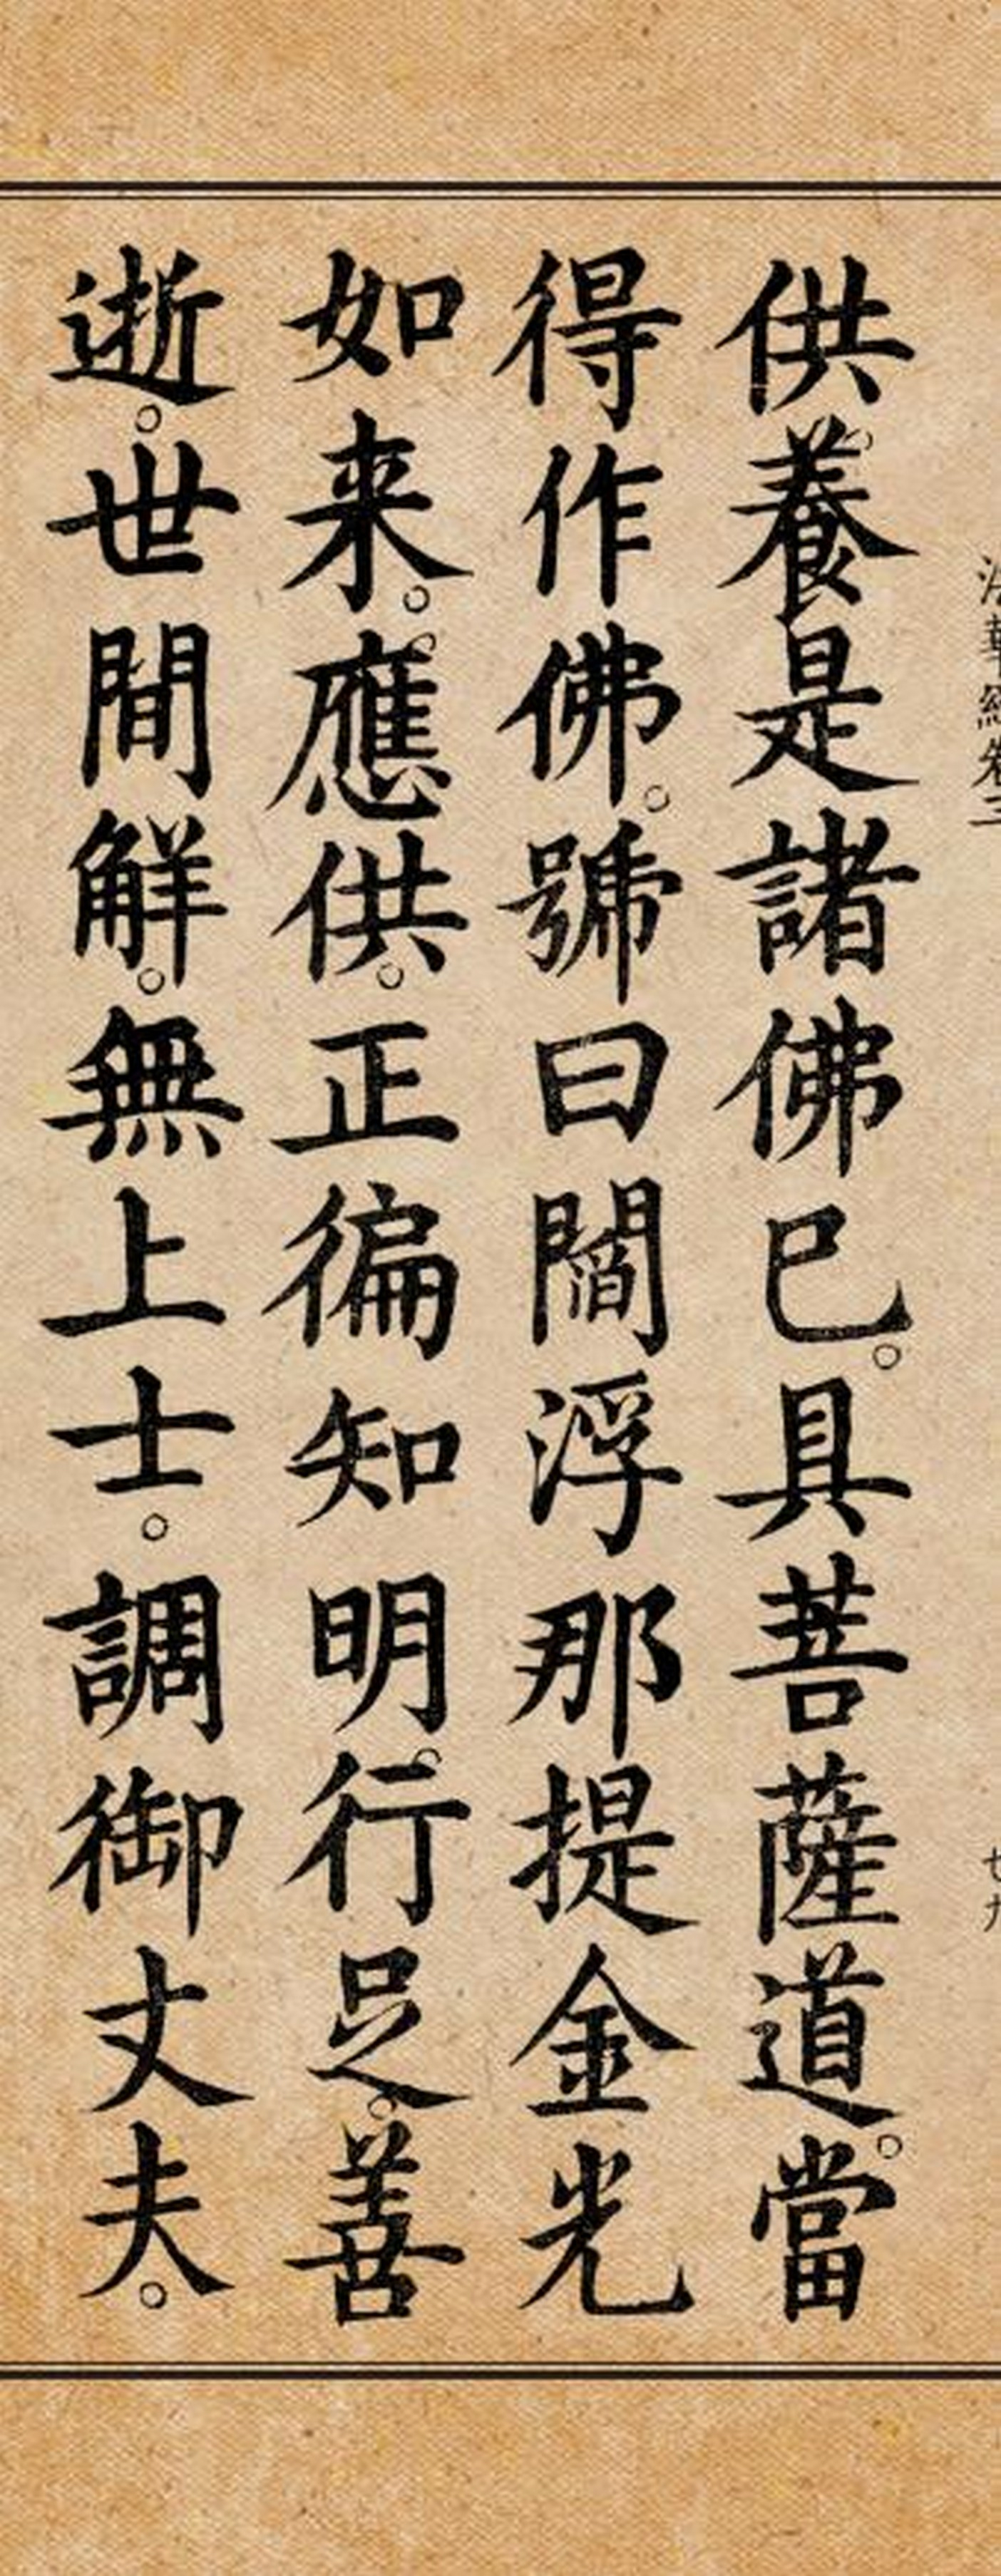 法華經卷三 廿九
供養是諸佛已。具菩薩道。當
得作佛。號曰閻浮那提金光
如来。應供。正徧知。明行足。善
逝。世間解。無上士。調御丈夫。